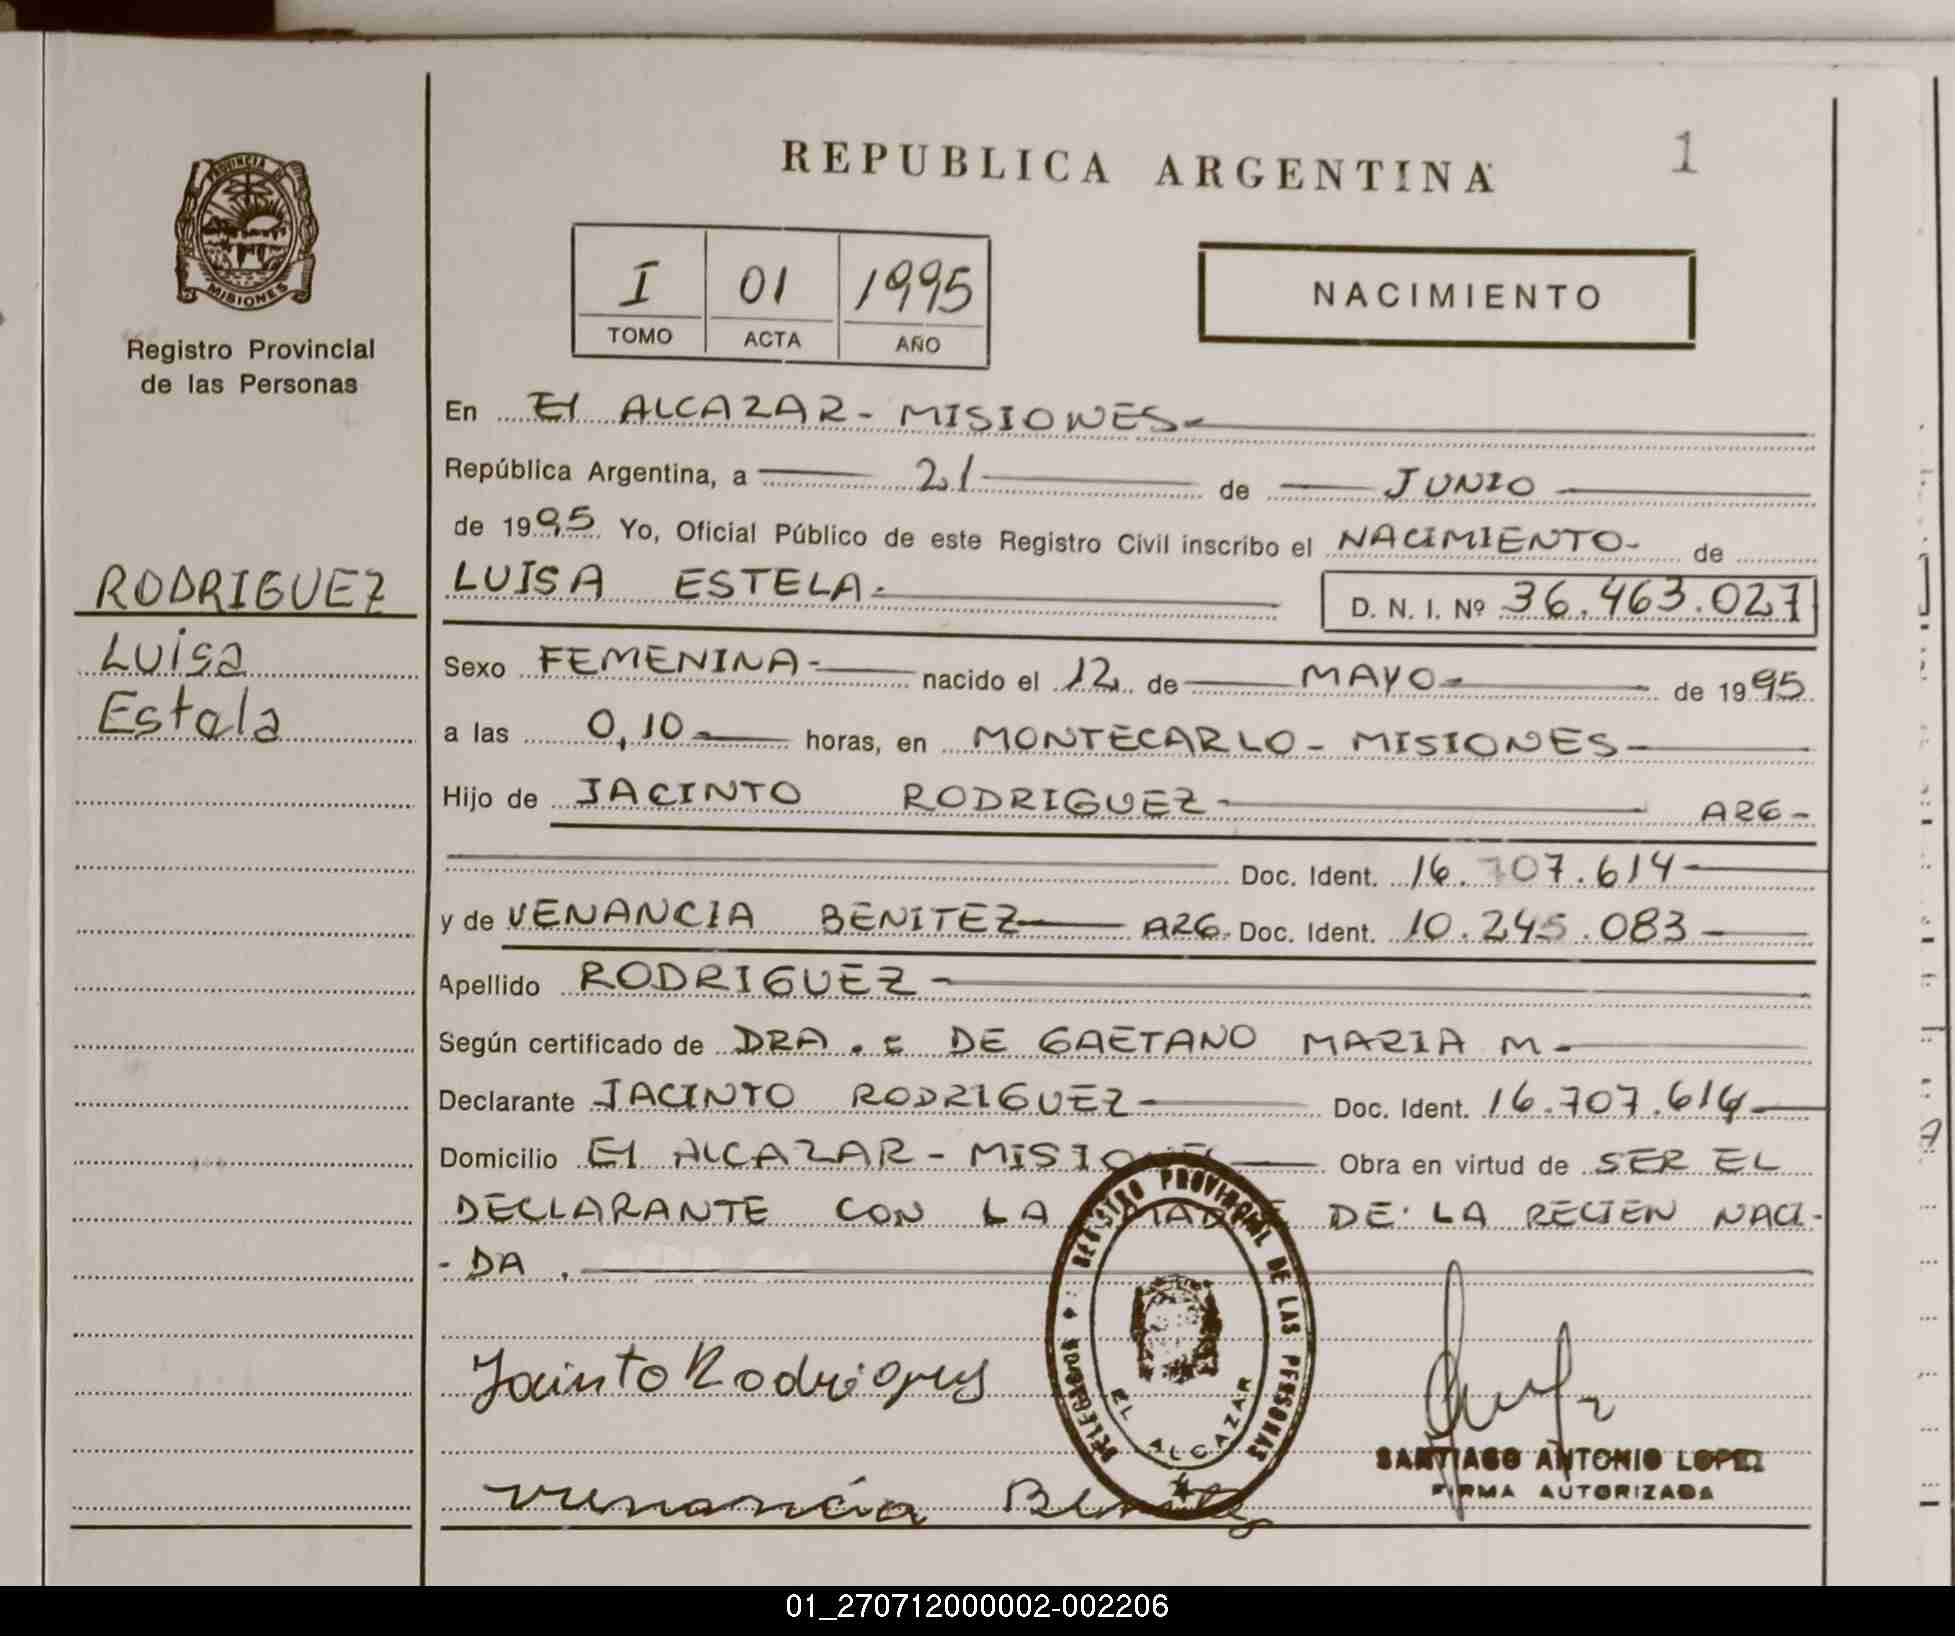 REPUBLICA ARGENTINA
1
PROVINCIA DE
MISIONES
Registro Provincial
de las Personas
I 01 1995
TOMO ACTA AÑO
NACIMIENTO
En El ALCAZAR - MISIONES
República Argentina, a 21 de JUNIO
de 1995 Yo, Oficial Público de este Registro Civil inscribo el NACIMIENTO - de
RODRIGUEZ
Luisa
Estela
LUISA ESTELA.
D. N. I. Nº 36.463.027
Sexo FEMENINA - nacido el 12 de MAYO de 1995
a las 0,10 horas, en MONTECARLO - MISIONES
Hijo de JACINTO RODRIGUEZ ARG -
Doc. Ident. 16.707.614
y de VENANCIA BENITEZ ARG. Doc. Ident. 10.245.083
Apellido RODRIGUEZ
Según certificado de DRA. : DE GAETANO MARIA M.
Declarante JACINTO RODRIGUEZ Doc. Ident. 16.707.614
Domicilio El ALCAZAR - MISIONES Obra en virtud de SER EL
DECLARANTE CON LA MADRE DE LA RECIEN NACI-
- DA .
REGISTRO PROVINCIAL DE LAS PERSONAS
DELEGACION
EL ALCAZAR
Jacinto Rodriguez
Venancia Benitez
SANTIAGO ANTONIO LOPEZ
FIRMA AUTORIZADA
01_270712000002-002206